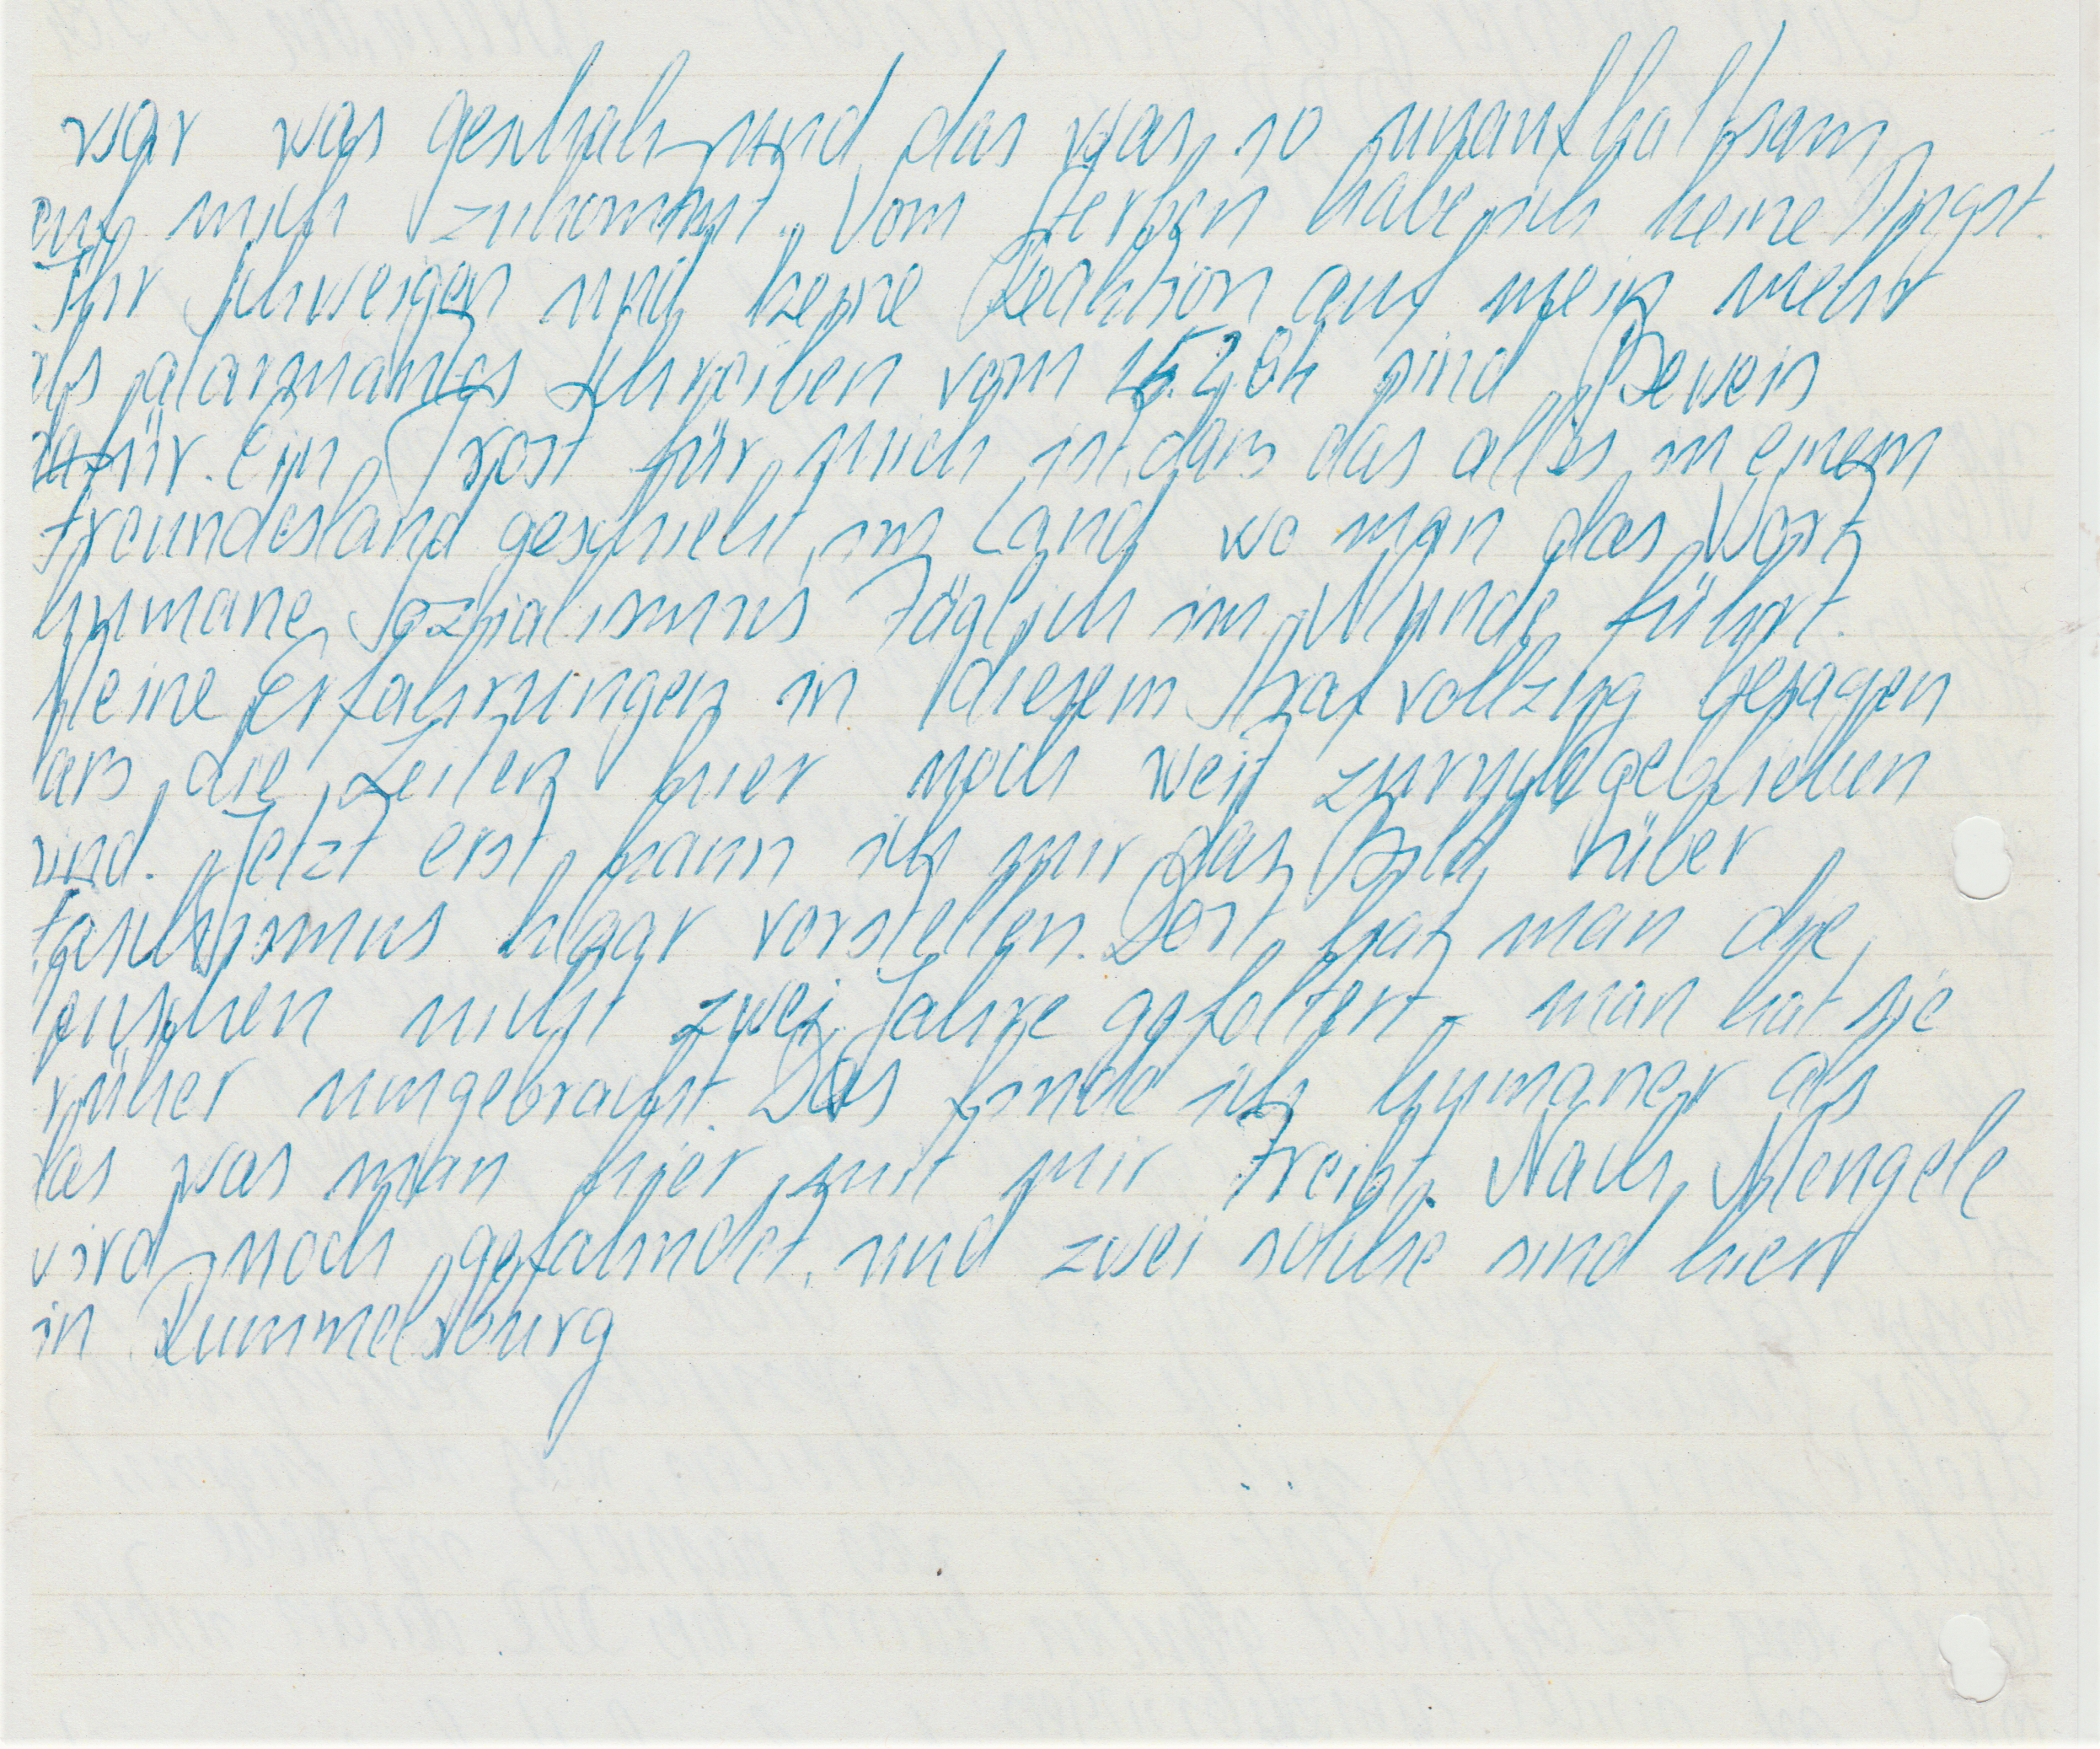 war was geschah und das was so unaufhaltsam
auf mich zukommt. Vom Sterben habe ich keine Angst.
Ihr Schweigen und keine Reaktion auf mein mehr
als alarmantes Schreiben vom 15.2.84 sind Beweis
dafür. Ein Trost für mich ist, dass das alles in einem
Freundesland geschieht, im Land wo man das Wort
humane Sozialismus täglich im Munde führt.
Meine Erfahrungen in diesem Strafvollzug besagen
dass die Zeiten hier noch weit zurückgeblieben
sind. Jetzt erst kann ich mir das Bild über
Faschismus klaar vorstellen. Dort hat man die
Menschen nicht zwei Jahre gefoltert - man hat sie
früher umgebracht. Das finde ich humaner als
das was man hier mit mir treibt. Nach Mengele
wird noch gefahndet, und zwei solche sind hier
in Rummelsburg